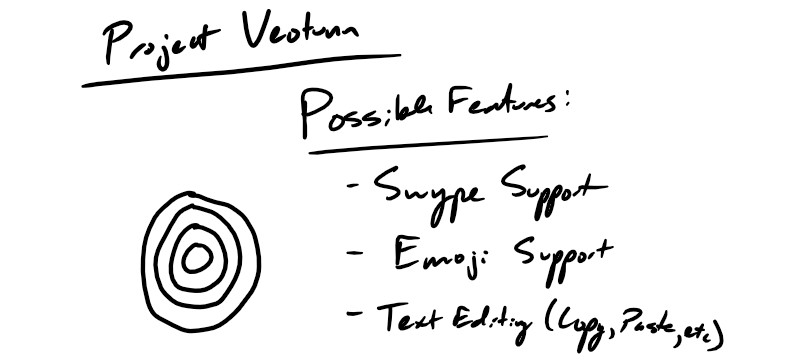 Project Veotunn
Possible Features:
- Swype Support
- Emoji Support
- Text Editing (Copy, Paste, etc)